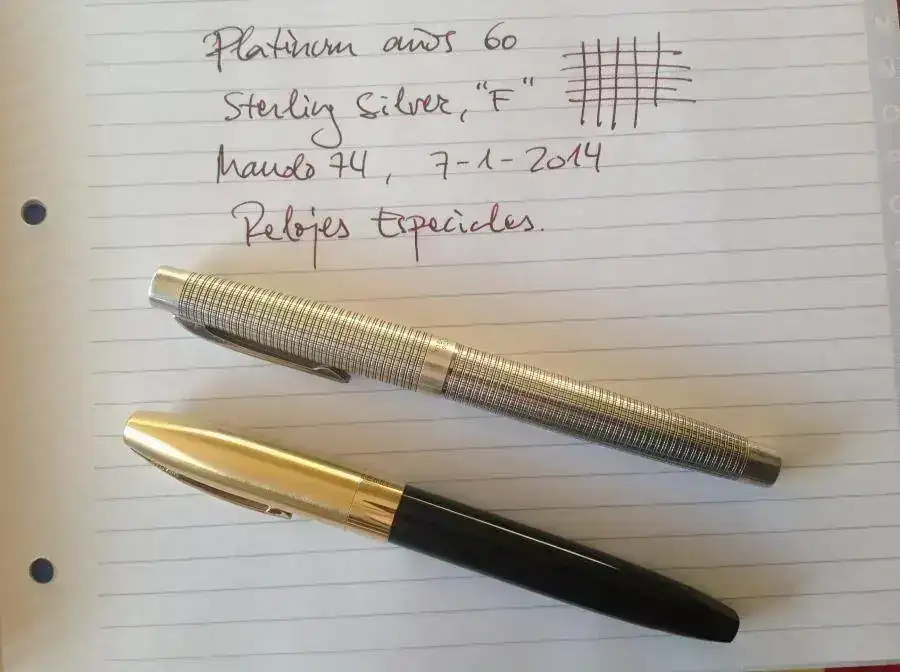 Platinum años 60
Sterling Silver, "F"
Manolo 74, 7-1-2014
Relojes Especiales.